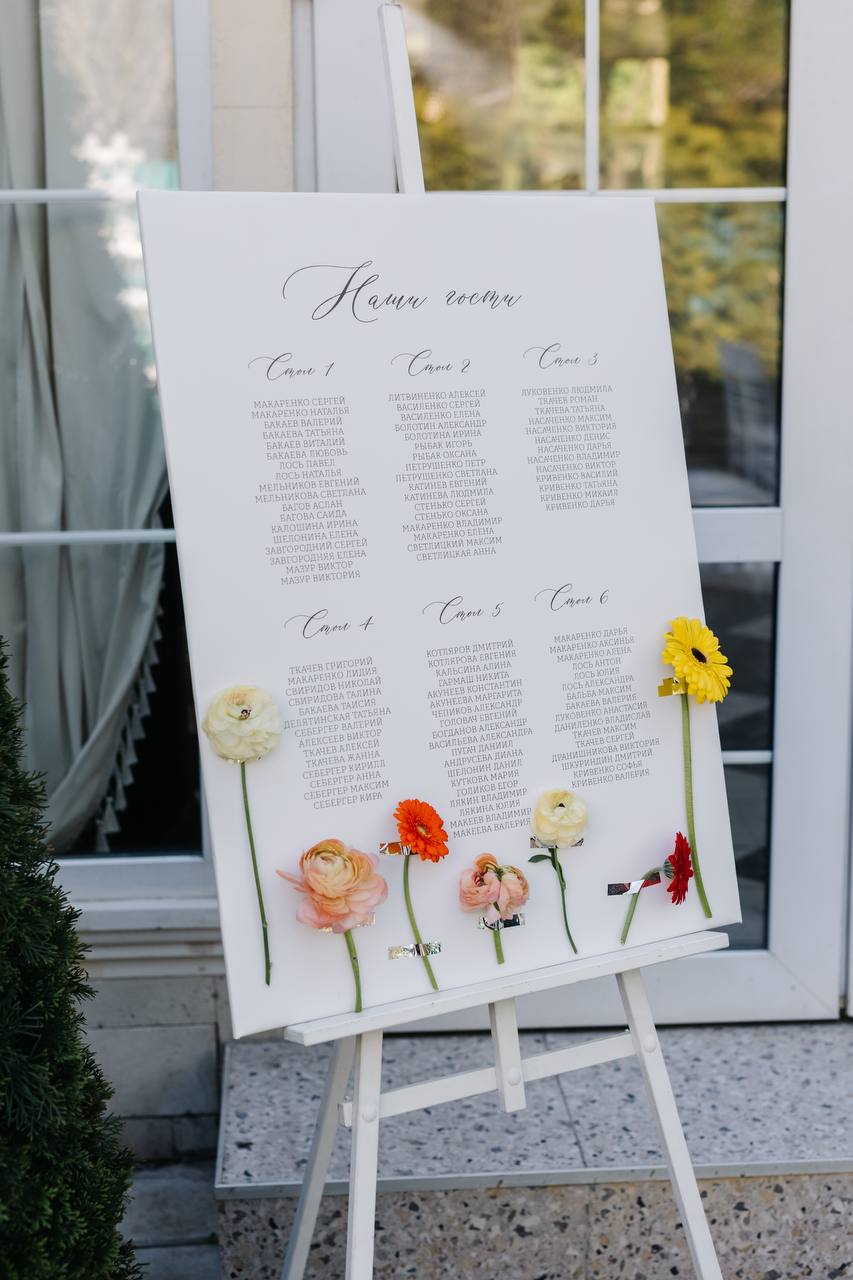 Наши гости
Стол 1
МАКАРЕНКО СЕРГЕЙ
МАКАРЕНКО НАТАЛЬЯ
БАКАЕВ ВАЛЕРИЙ
БАКАЕВА ТАТЬЯНА
БАКАЕВ ВИТАЛИЙ
БАКАЕВА ЛЮБОВЬ
ЛОСЬ ПАВЕЛ
ЛОСЬ НАТАЛЬЯ
МЕЛЬНИКОВ ЕВГЕНИЙ
МЕЛЬНИКОВА СВЕТЛАНА
БАГОВ АСЛАН
БАГОВА САИДА
КАЛОШИНА ИРИНА
ШЕЛОНИНА ЕЛЕНА
ЗАВГОРОДНИЙ СЕРГЕЙ
ЗАВГОРОДНЯЯ ЕЛЕНА
МАЗУР ВИКТОР
МАЗУР ВИКТОРИЯ
Стол 2
ЛИТВИНЕНКО АЛЕКСЕЙ
ВАСИЛЕНКО СЕРГЕЙ
ВАСИЛЕНКО ЕЛЕНА
БОЛОТИН АЛЕКСАНДР
БОЛОТИНА ИРИНА
РЫБАК ИГОРЬ
РЫБАК ОКСАНА
ПЕТРУШЕНКО ПЕТР
ПЕТРУШЕНКО СВЕТЛАНА
КАТИНЕВ ЕВГЕНИЙ
КАТИНЕВА ЛЮДМИЛА
СТЕНЬКО СЕРГЕЙ
СТЕНЬКО ОКСАНА
МАКАРЕНКО ВЛАДИМИР
МАКАРЕНКО ЕЛЕНА
СВЕТЛИЦКИЙ МАКСИМ
СВЕТЛИЦКАЯ АННА
Стол 3
ЛУКОВЕНКО ЛЮДМИЛА
ТКАЧЕВ РОМАН
ТКАЧЕВА ТАТЬЯНА
НАСАЧЕНКО МАКСИМ
НАСАЧЕНКО ВИКТОРИЯ
НАСАЧЕНКО ДЕНИС
НАСАЧЕНКО ДАРЬЯ
НАСАЧЕНКО ВЛАДИМИР
НАСАЧЕНКО ВИКТОР
КРИВЕНКО ВАСИЛИЙ
КРИВЕНКО ТАТЬЯНА
КРИВЕНКО МИХАИЛ
КРИВЕНКО ДАРЬЯ
Стол 4
ТКАЧЕВ ГРИГОРИЙ
МАКАРЕНКО ЛИДИЯ
СВИРИДОВ НИКОЛАЙ
СВИРИДОВА ГАЛИНА
БАКАЕВА ТАИСИЯ
ДЕЛЯТИНСКАЯ ТАТЬЯНА
СЕБЕРГЕР ВАЛЕРИЙ
АЛЕКСЕЕВ ВИКТОР
ТКАЧЕВ АЛЕКСЕЙ
ТКАЧЕВА ЖАННА
СЕБЕРГЕР КИРИЛЛ
СЕБЕРГЕР АННА
СЕБЕРГЕР МАКСИМ
СЕБЕРГЕР КИРА
Стол 5
КОТЛЯРОВ ДМИТРИЙ
КОТЛЯРОВА ЕВГЕНИЯ
КАЛЬСИНА АЛИНА
ГАРМАШ НИКИТА
АКУНЕЕВ КОНСТАНТИН
АКУНЕЕВА МАРГАРИТА
ЧЕПИКОВ АЛЕКСАНДР
ГОЛОВАЧ ЕВГЕНИЙ
БОГДАНОВ АЛЕКСАНДР
ВАСИЛЬЕВА АЛЕКСАНДРА
ПУГАЧ ДАНИИЛ
АНДРУСЕВА ДИАНА
ШЕЛОНИН ДАНИЛ
КУТКОВА МАРИЯ
ГОЛИКОВ ЕГОР
ЛЯКИН ВЛАДИМИР
ЛЯКИНА ЮЛИЯ
МАКЕЕВ ВЛАДИМИР
МАКЕЕВА ВАЛЕРИЯ
Стол 6
МАКАРЕНКО ДАРЬЯ
МАКАРЕНКО АКСИНЬЯ
МАКАРЕНКО АЛЕНА
ЛОСЬ АНТОН
ЛОСЬ ЮЛИЯ
ЛОСЬ АЛЕКСАНДРА
БАЛЬБА МАКСИМ
БАКАЕВА ВАЛЕРИЯ
ЛУКОВЕНКО АНАСТАСИЯ
ДАНИЛЕНКО ВЛАДИСЛАВ
ТКАЧЕВ МАКСИМ
ТКАЧЕВ СЕРГЕЙ
ДРАНИШНИКОВА ВИКТОРИЯ
ШКУРИНДИН ДМИТРИЙ
КРИВЕНКО СОФЬЯ
КРИВЕНКО ВАЛЕРИЯ